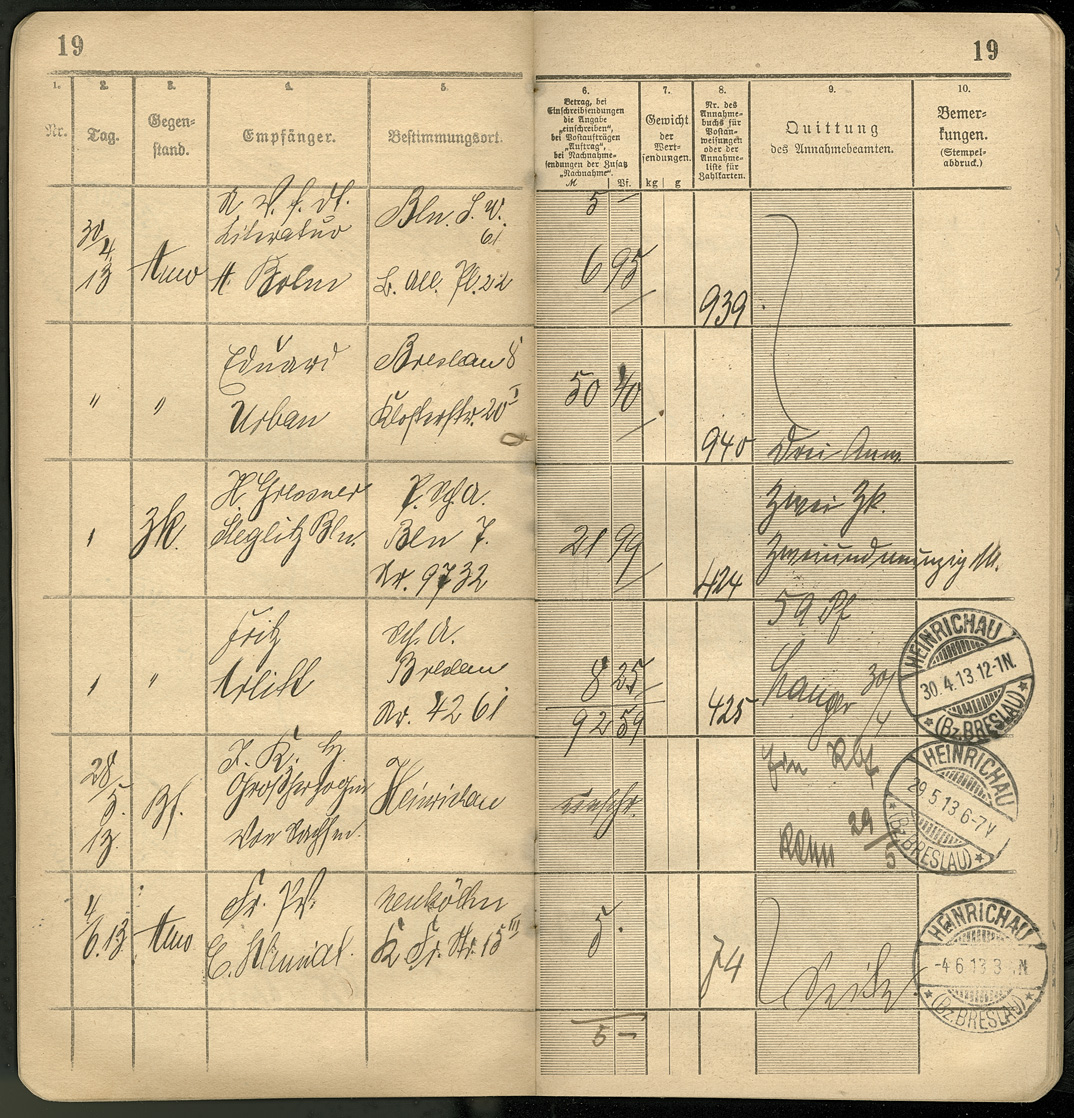 19
19
1.
2.
3.
4.
5.
6.
7.
8.
9.
10.
Nr.
Tag.
Gegen-
stand.
Empfänger.
Bestimmungsort.
Betrag, bei
Einschreibsendungen
die Angabe
„einschreiben“,
bei Postaufträgen
„Auftrag“,
bei Nachnahme-
sendungen der Zusatz
„Nachnahme“.
M Pf.
Gewicht
der
Wert-
sendungen.
kg g
Nr. des
Annahme-
buchs für
Postan-
weisungen
oder der
Annahme-
liste für
Zahlkarten.
Quittung
des Annahmebeamten.
Bemer-
kungen.
(Stempel-
abdruck.)
30/4 13
A. V. f. dt.
Literatur
A. Bolm
Bln. S. W.
61
B. All. Pl. 22
5 –
6 95
939
" "
Eduard
Urban
Breslau 8
Klosterstr. 20 I
50 40
940
Drei Anw
Zk.
H Gressner
Steglitz Bln.
P. Sch A.
Bln 7.
Nr. 9732
21 99
424
Zwei Zk.
Zweiundneunzig M.
59 Pf
"
Fritz
Sch. A.
Breslau
Nr. 4261
8 25
92 59
425
Langer 30/4
HEINRICHAU
30.4.13.12-1N.
(Bz.BRESLAU)
28/5. 13.
Bf.
I. K. H.
Großherzogin
von Sachsen.
Heinrichau
einschr.
Ein Rbf
29/5
HEINRICHAU
29 5 13 6-7V
(Bz.BRESLAU)
4/6.13
Fr. Pf.
Neukölln
K. Fr. Str. 15 III
5.
74
Seidel
HEINRICHAU
-4 6 13 3 N
(Bz.BRESLAU)
5 –